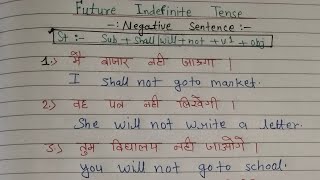 Future Indefinite Tense
-: Negative Sentence:-
St :- Sub + Shall/will + not + V1 + obj
1.) मैं बाजार नहीं जाऊगा ।
I shall not goto market.
2.) वह पत्र नहीं लिखेगी ।
She will not write a letter.
3.) तुम विद्यालय नहीं जाओगे ।
you will not go to school.